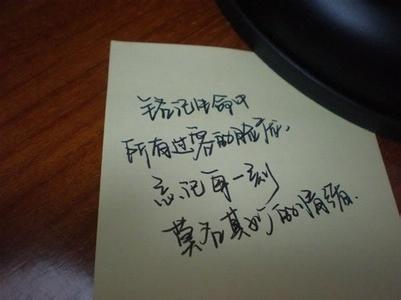 铭记生命中
所有过客的脸庞,
忘记每一刻
莫名其妙的情绪.